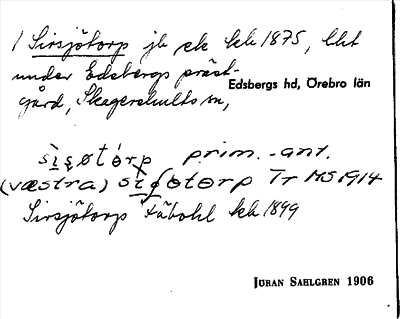 1 Sirsjötorp jb ek kb 1875, lht
under Edsbergs präst-
gård, Skagershults sn,
Edsbergs hd, Örebro län
sı̀ʂøtòrp prim.-ant.
(væstra) sı̀ʃɵtɵrp Tr MS 1914
Sirsjötorp Fäbohl kb 1899
JÖRAN SAHLGREN 1906